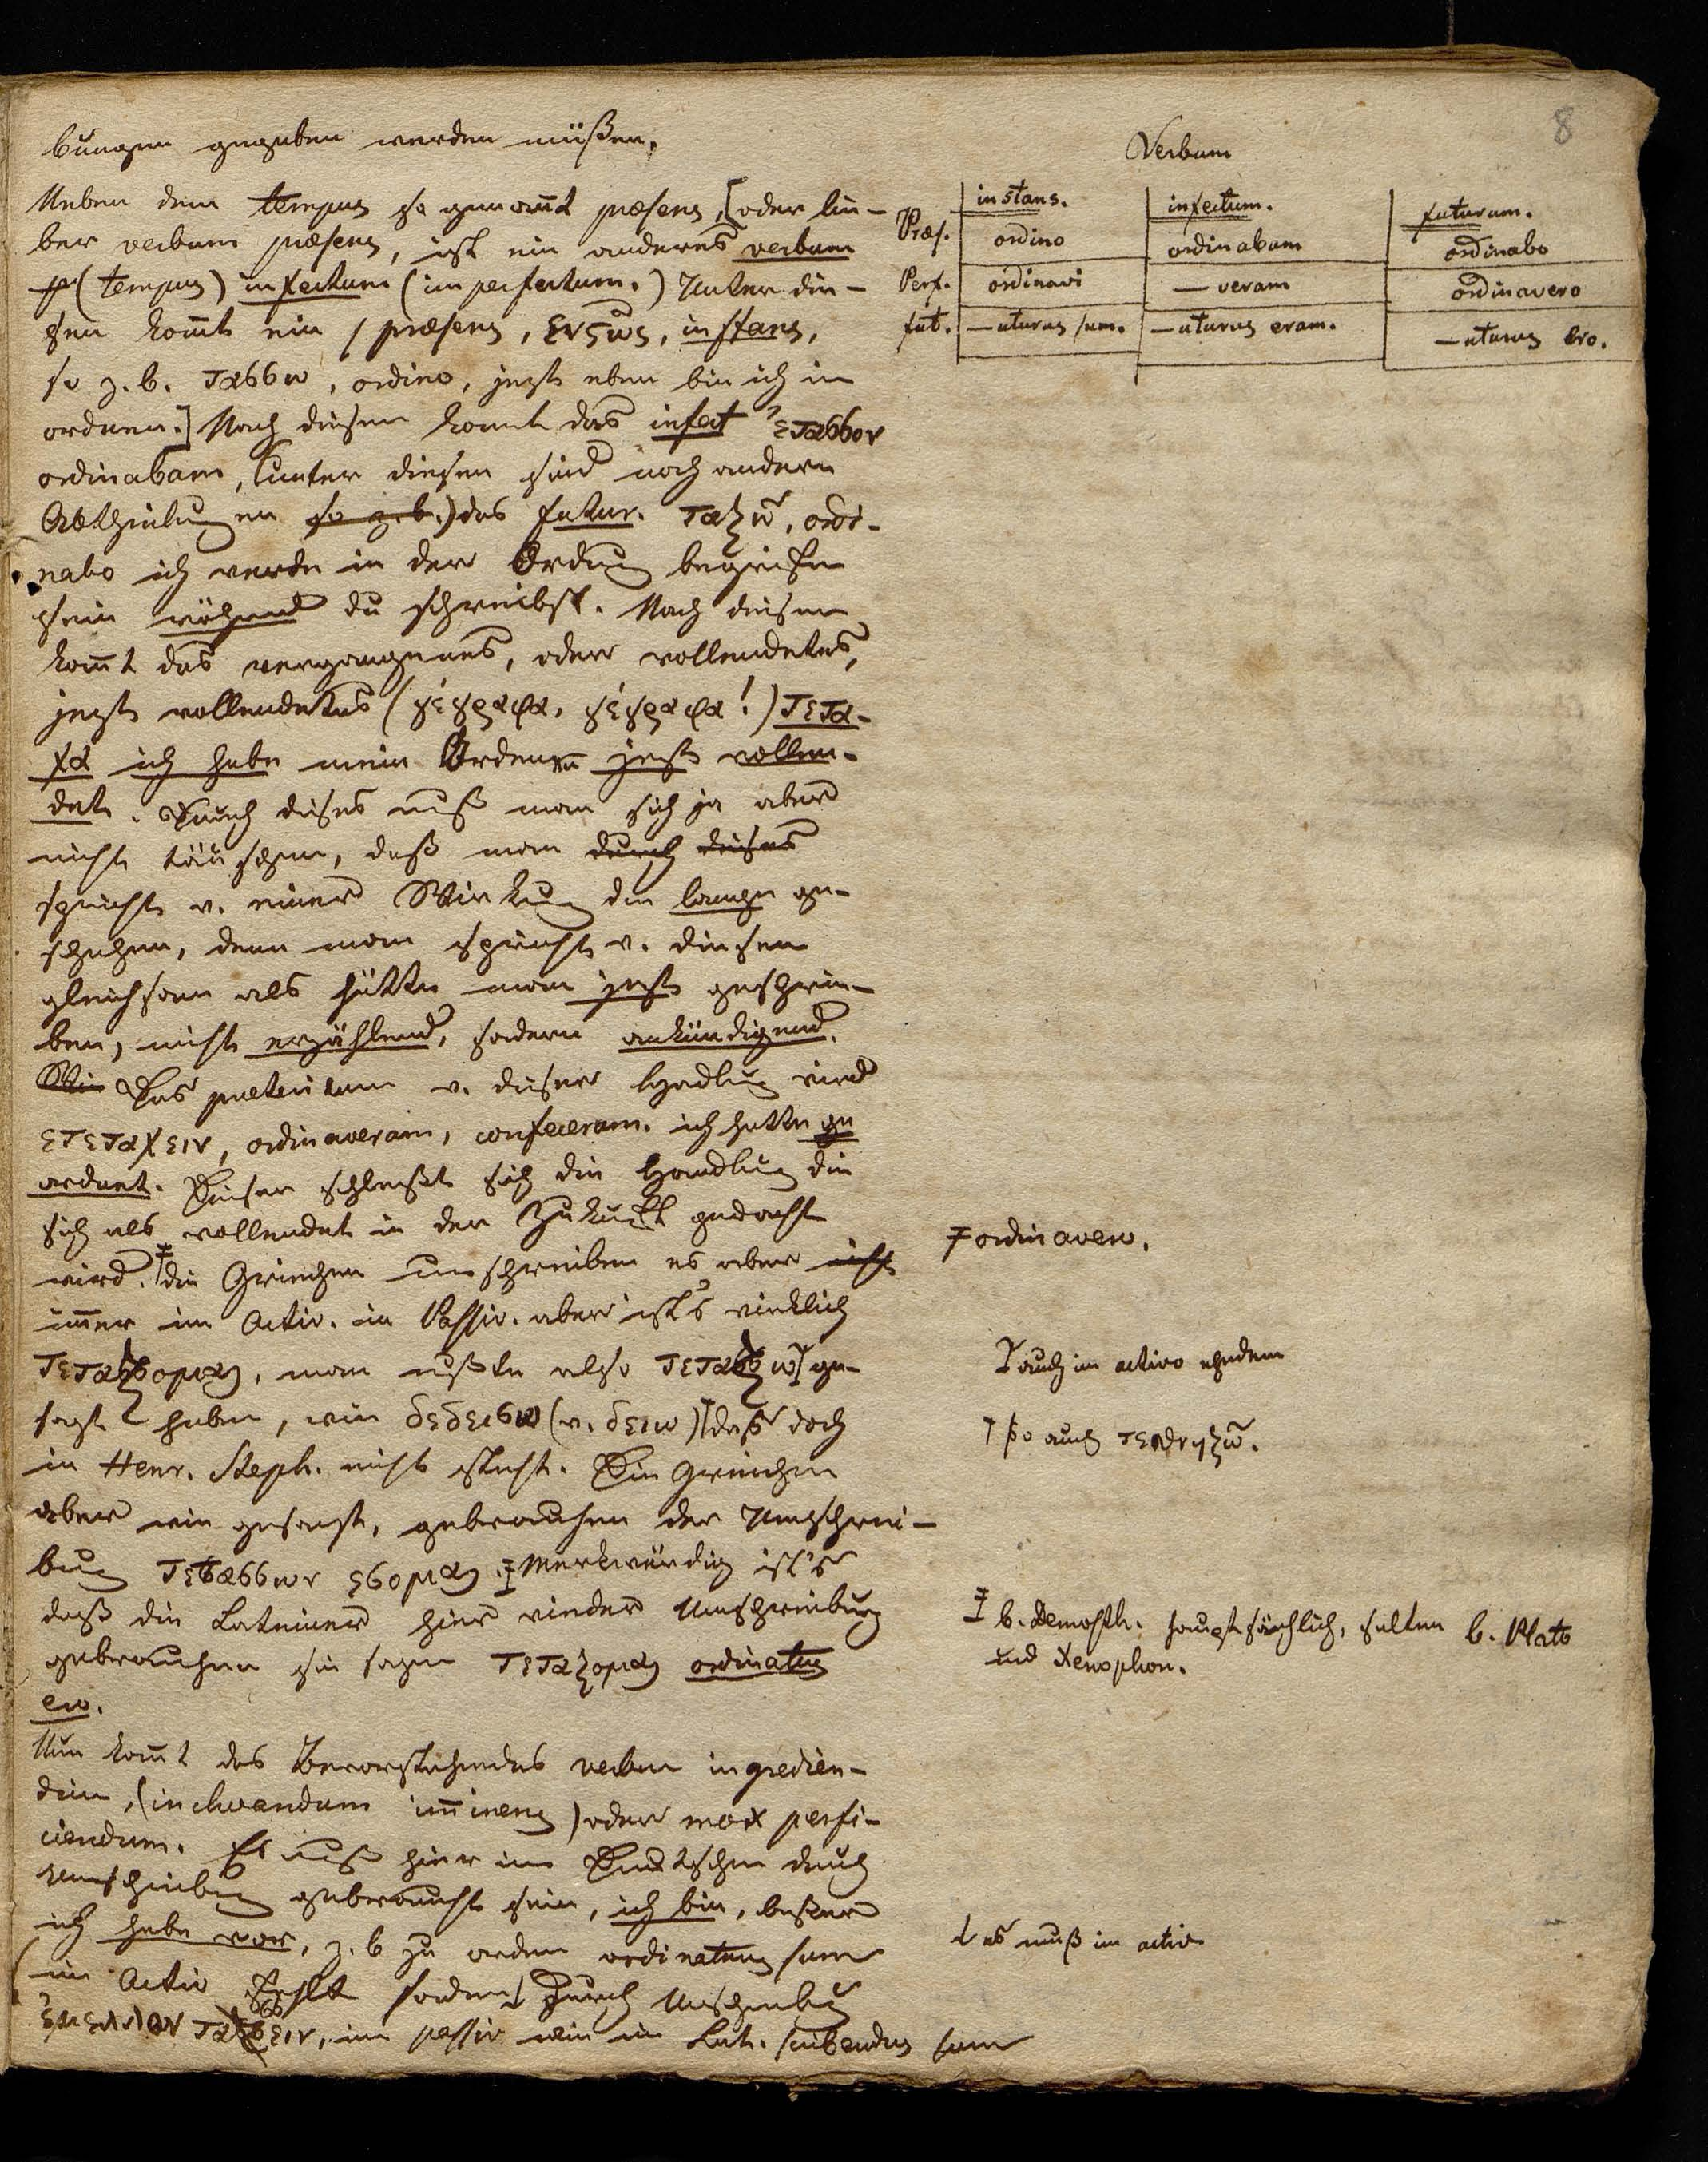 8
bungen gegeben werden müßen.
Neben dem tempus so genan̄t præsens, [oder lie-
ber verbum præsens, ist ein anderes verbum
(tempus) infectum (imperfectum.) Unter die-
sen kom̄t ein præsens, ενςως, instans,
so z. b. ταςςω, ordino, jezt eben bin ich im
ordnen.] Nach diesem komt das infect ἐταςςον
ordinabam, (unter diesen sind noch andere
Abtheilungen so z. b.) das futur. ταξω, ordi-
nabo ich werde in der Ordnung begrifen
sein während du schreibst. Nach diesem
kom̄t das vergangenes, oder vollendetes,
jezt vollendetes (γέγραφα, γέγραφα!) τετα-
χα ich habe mein Ordenen jezt vollen-
det. Durch dieses muß man sich ja aber
nicht täuschen, daß man durch dieses
spricht v. einer Wirkung die lange ge-
schehen, denn man spricht v. diesen
gleichsam als hätte man jezt geschrie-
ben, nicht erzählend, sondern ankündigend.
Wie Das præteritum v. dieser Handlung wird
ετεταχειν, ordinaveram, confeceram. ich hatte ge
ordnet. Dieser schließt sich die Handlung die
sich als vollendet in der Zukunft gedacht
wird. die Griechen umschreiben es aber nicht
im̄er im Activ. im Passiv. aber ist's wirklich
τεταξομαι, man mußte also τεταξω ge-
sagt haben, wie δεδεισω (v. δειω) daß doch
in Henr. Steph. nicht steht. Die Griechen
aber wie gesagt, gebrauchen der Umschrei-
bung τεταςςων εσομαι. Merkwürdig ist's
daß die Lateiner hier wieder Umschreibung
gebrauchen sie sagen τεταξομαι ordinatus
ero.
Nun kom̄t das Bevorstehendes verbum ingredien-
dum, (inchoandum im̄inens) oder mox perfi-
ciendum. Es muß hier im Deutschen durch
Umschreibung gebraucht sein, ich bin, beßer
ich habe vor, z. b zu ordnen ordinaturus sum
im Activ fehlt sondern durch Umschreibung
ἐμελλον ταςςειν, im passiv wie im Lat. scribendus sum
Verbum
instans. infectum. futurum.
Præs. ordino ordinabam ordinabo
Perf. ordinavi — veram ordinavero
fut. — uturus sum. — uturus eram. — uturus ero.
ordinavero.
auch im activo
so auch τεθνηξω.
b. Demosth. hauptsächlich, selten b. Plato
und Xenophon.
es muß im activ